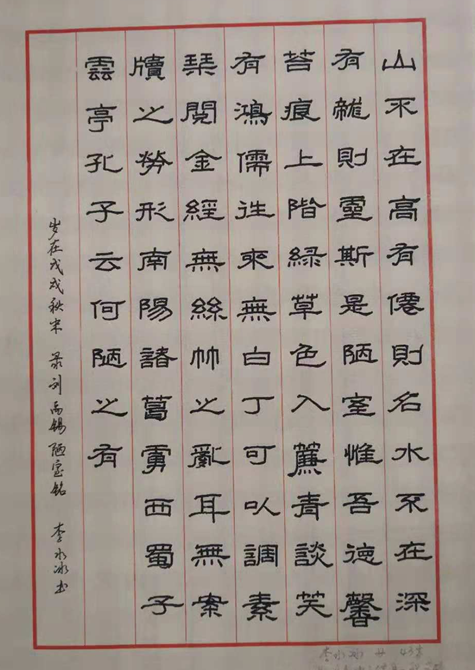 山不在高有僊則名水不在深
有龍則靈斯是陋室惟吾德馨
苔痕上階緑草色入簾青談笑
有鴻儒往來無白丁可以調素
琴閱金經無絲竹之亂耳無案
牘之勞形南陽諸葛廬西蜀子
雲亭孔子云何陋之有
岁在戊戌秋末 录刘禹锡陋室铭 李冰书